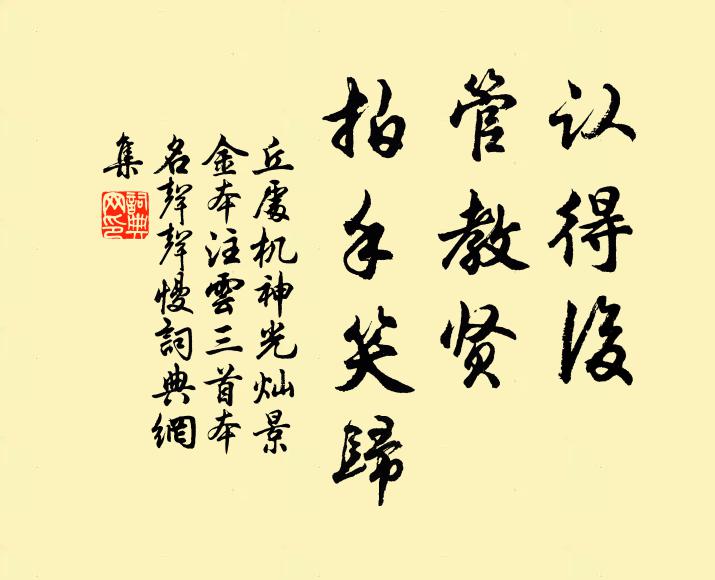 认得後
管教贤
拍手笑歸
丘處机神光灿景
金本注雲三首本
名聲聲慢詞典網
集
詞典
网印